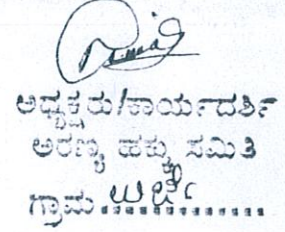 ಅಧ್ಯಕ್ಷರು/ಕಾರ್ಯದರ್ಶಿ
ಅರಣ್ಯ ಹಕ್ಕು ಸಮಿತಿ
ಗ್ರಾಮ.............